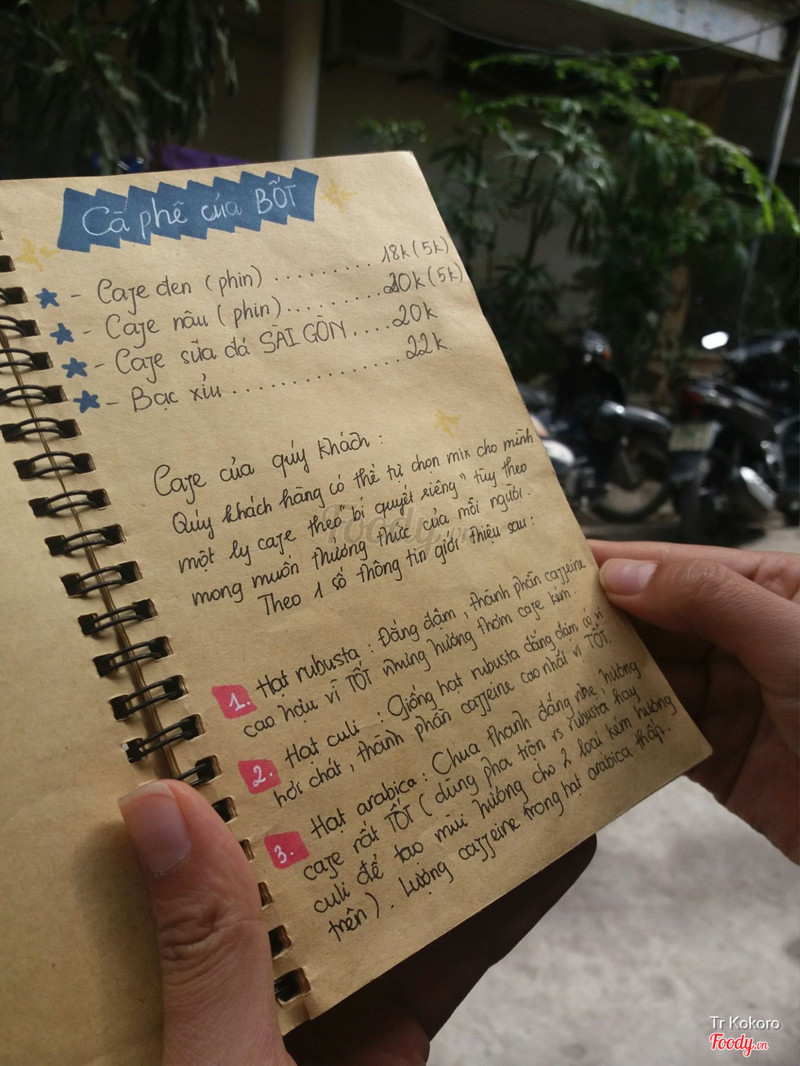 Cà phê của BỐT
- Cafe đen (phin) ......... 18k (5k)
- Cafe nâu (phin) ......... 20k (5k)
- Cafe sữa đá SÀI GÒN .... 20k
- Bạc xỉu ............... 22k
Cafe của quý khách :
Qúy khách hàng có thể tự chọn mix cho mình
một ly cafe theo "bí quyết riêng" tùy theo
mong muốn thưởng thức của mỗi người.
Theo 1 số thông tin giới thiệu sau :
1. Hạt rubusta : Đắng đậm, thành phần caffeine
cao hậu vị TỐT nhưng hương thơm cafe kém.
2. Hạt culi : Giống hạt rubusta đắng đậm có vị
hơi chát, thành phần caffeine cao nhất vị TỐT.
3. Hạt arabica : Chua thanh đắng nhẹ, hương
cafe rất TỐT ( dùng pha trộn vs rubusta hay
culi để tạo mùi hương cho 2 loại kém hương
trên ). Lượng caffeine trong hạt arabica thấp.
Foody.vn
Tr Kokoro
Foody.vn